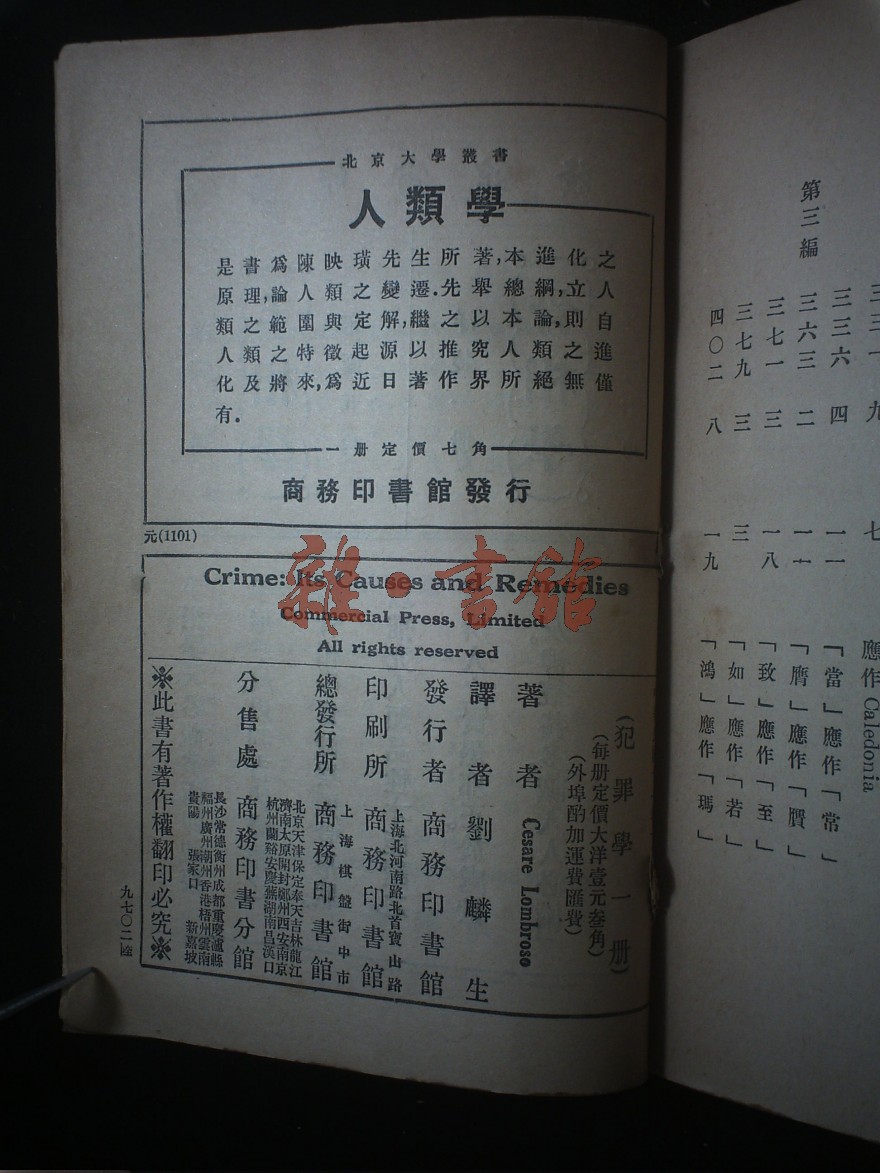 北京大學叢書
人類學
是書爲陳映璜先生所著,本進化之
原理,論人類之變遷.先舉總綱,立人
類之範圍與定解,繼之以本論,則自
人類之特徵起源以推究人類之進
化及將來,爲近日著作界所絕無僅
有.
一册定價七角
商務印書館發行
元(1101)
Crime: Its Causes and Remedies
Commercial Press, Limited
All rights reserved
(犯罪學一册)
(每册定價大洋壹元叁角)
(外埠酌加運費匯費)
著者 Cesare Lombroso
譯者 劉麟生
發行者 商務印書館
上海北河南路北首寶山路
印刷所 商務印書館
上海棋盤街中市
總發行所 商務印書館
北京天津保定奉天吉林龍江
濟南太原開封鄭州西安南京
杭州蘭谿安慶蕪湖南昌漢口
分售處 商務印書分館
長沙常德衡州成都重慶瀘縣
福州廣州潮州香港梧州雲南
貴陽 張家口 新嘉坡
※此書有著作權翻印必究※
九七〇二陸
雜·書館
應作Caledonia
第三編
三三六 四 一一 「當」應作「常」
三六三 二 一一 「膺」應作「贋」
三七一 三 一八 「致」應作「至」
三七九 三 三 「如」應作「若」
四〇二 八 一九 「鴻」應作「瑪」